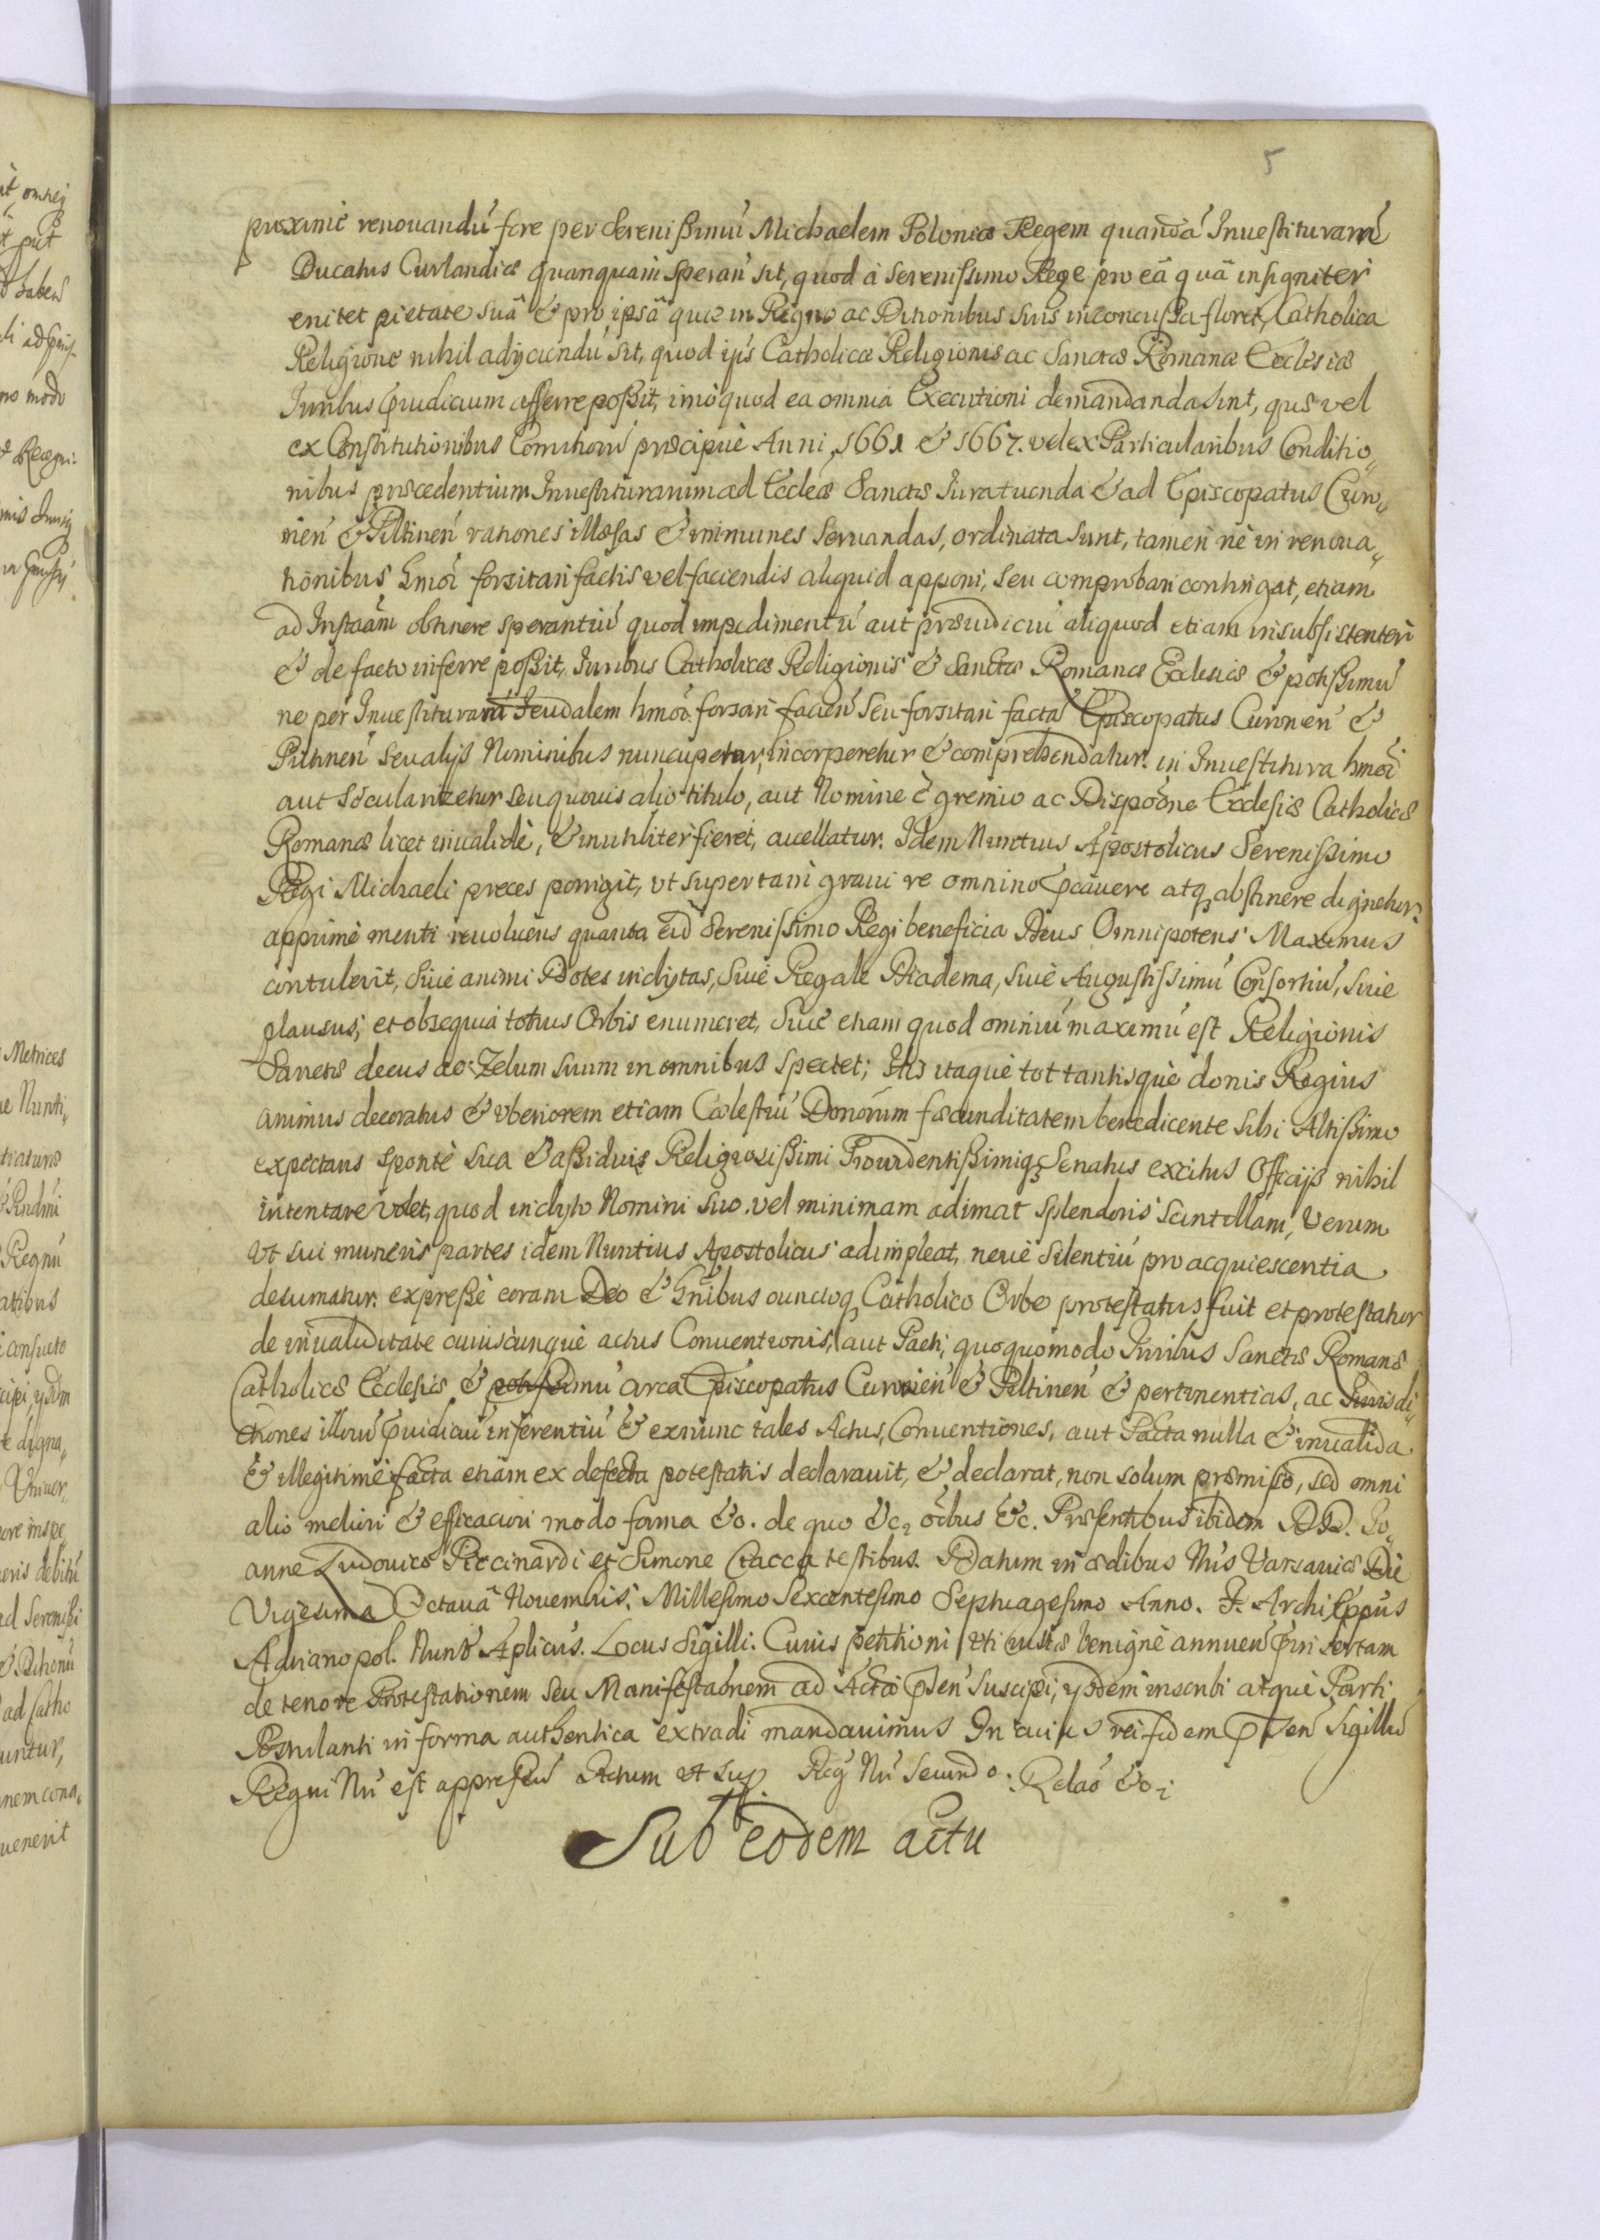 5
proximè renouandũ fore per Serenissimũ Michaelem Poloniæ Regem quandã Inuestituram
Ducatus Curlandiæ quanquam speran sit, quod à Serenissimo Rege pro eâ quâ insigniter
enitet pietate suâ & pro ipsâ quæ in Regno ac Ditionibus suis inconcussa floret, Catholica
Religione nihil adyciendũ sit, quod ijs Catholicæ Religionis ac Sanctæ Romanæ Ecclesiæ
Iuribus pruidicium afferre possit, imò quod ea omnia Executioni demandanda sint, quæ vel
ex Constitutionibus Comitiorũ præcipuè Anni, 1661 & 1667. vel ex Particularibus Conditio„
nibus præcedentium Inuestituraninm ad Eccleæ Sanctæ Iura tuenda & ad Episcopatus Curo„
nien & Piltinen rationes illæsas & immunes seruandas, ordinata sunt, tamen nè in renoua„
tionibus hmõi forsitan factis vel faciendis aliquid apponi, seu comprobari contingat, etiam
ad Instaãm obtinere sperantiũ quod impedimentũ aut præiudiciũ aliquod etiam insubsistenter
& de facto inferre possit, Iuribus Catholicæ Religionis & Sanctæ Romanæ Ecclesiæ & potissimũ
ne per Inuestituram feudalem hmõi forsan facien seu forsitan facta Episcopatus Curonen &
Piltinen seu alijs Nominibus nuncupetur, incorporetur & comprehendatur in Inuestitura hmõi
aut sæcularizetur seu quouis alio titulo, aut Nomine è gremio ac Dispoõne Ecclesiæ Catholicæ
Romanæ licet inualidè, & inutiliter fieret, auellatur. Idem Nuntius Apostolicus Serenissimo
Regi Michaeli preces porrigit, vt super tam graui re omnino pcauere atq abstinere dignetur
apprimè menti reuoluens quanta eid Serenissimo Regi beneficia Deus Omnipotens Maximus
contulerit, siue animi Dotes inclytas, siue Regale Diadema, siuè Augustissimũ Consortiũ, siue
plausus, et obsequia totius Orbis enumeret, siue etiam quod omniũ maximũ est Religionis
Sanctæ decus ac Zelum suum in omnibus spectet; His itaquè tot tantisquè donis Regius
animus decoratus & vberiorem etiam Cælestiũ Donorum fæcunditatem benedicente sibi Altissimo
expectans spontè sua & assiduis Religiosissimi Prouidentissimiq Senatus excitus Officijs nihil
intentare volet, quod inclyto Nomini suo, vel minimam adimat splendoris scintillam, Verum
vt sui muneris partes idem Nuntius Apostolicus adimpleat, neuè silentiũ pro acquiescentia
desumatur. expressè coram Deo & hñibus cunctoq Catholico Orbe protestatus fuit et protestatur
de inualiditate cuiuscunquè actus Conuentionis, aut Pacti, quoquomodo Iuribus Sanctæ Romanæ
Catholicæ Ecclesiæ & potissimũ circa Episcopatus Curonien & Piltinen & pertinentias, ac Iurisdi„
ctiones illorũ pruidiciũ inferentiũ & exnunc tales Actus, Conuentiones, aut Pacta nulla & inualida
& illegitimè facta etiam ex defectu potestatis declarauit, & declarat, non solum præmisso, sed omni
alio meliori & efficaciori modo forma &c. de quo &c, oîbus &c. Præsentibus ibidem DD. Io„
anne Ludouico Piccinardi et Simone Cracca testibus. Datum in ædibus Nris Varsauiæ Die
Vigesima Octauâ Nouembris, Millesimo Sexcentesimo Septuagesimo Anno. F. Archi Eppûs
Adrianopol. Nunt Aplicus. Locus Sigilli. Cuius petitioni vti iustæ benignè annuen p̃insertam
de tenore Protestationem seu Manifestaõnem ad Acta p̃sen suscipi, ysdem inscribi atquè Parti
Postulanti in forma authentica extradi mandauimus In cuius rei fidem p̃sen sigillũ
Regni Nrĩ est appressũ Actum vt sup. Reg Nrĩ Secundo. Relaõ &c
Sub eodem actu